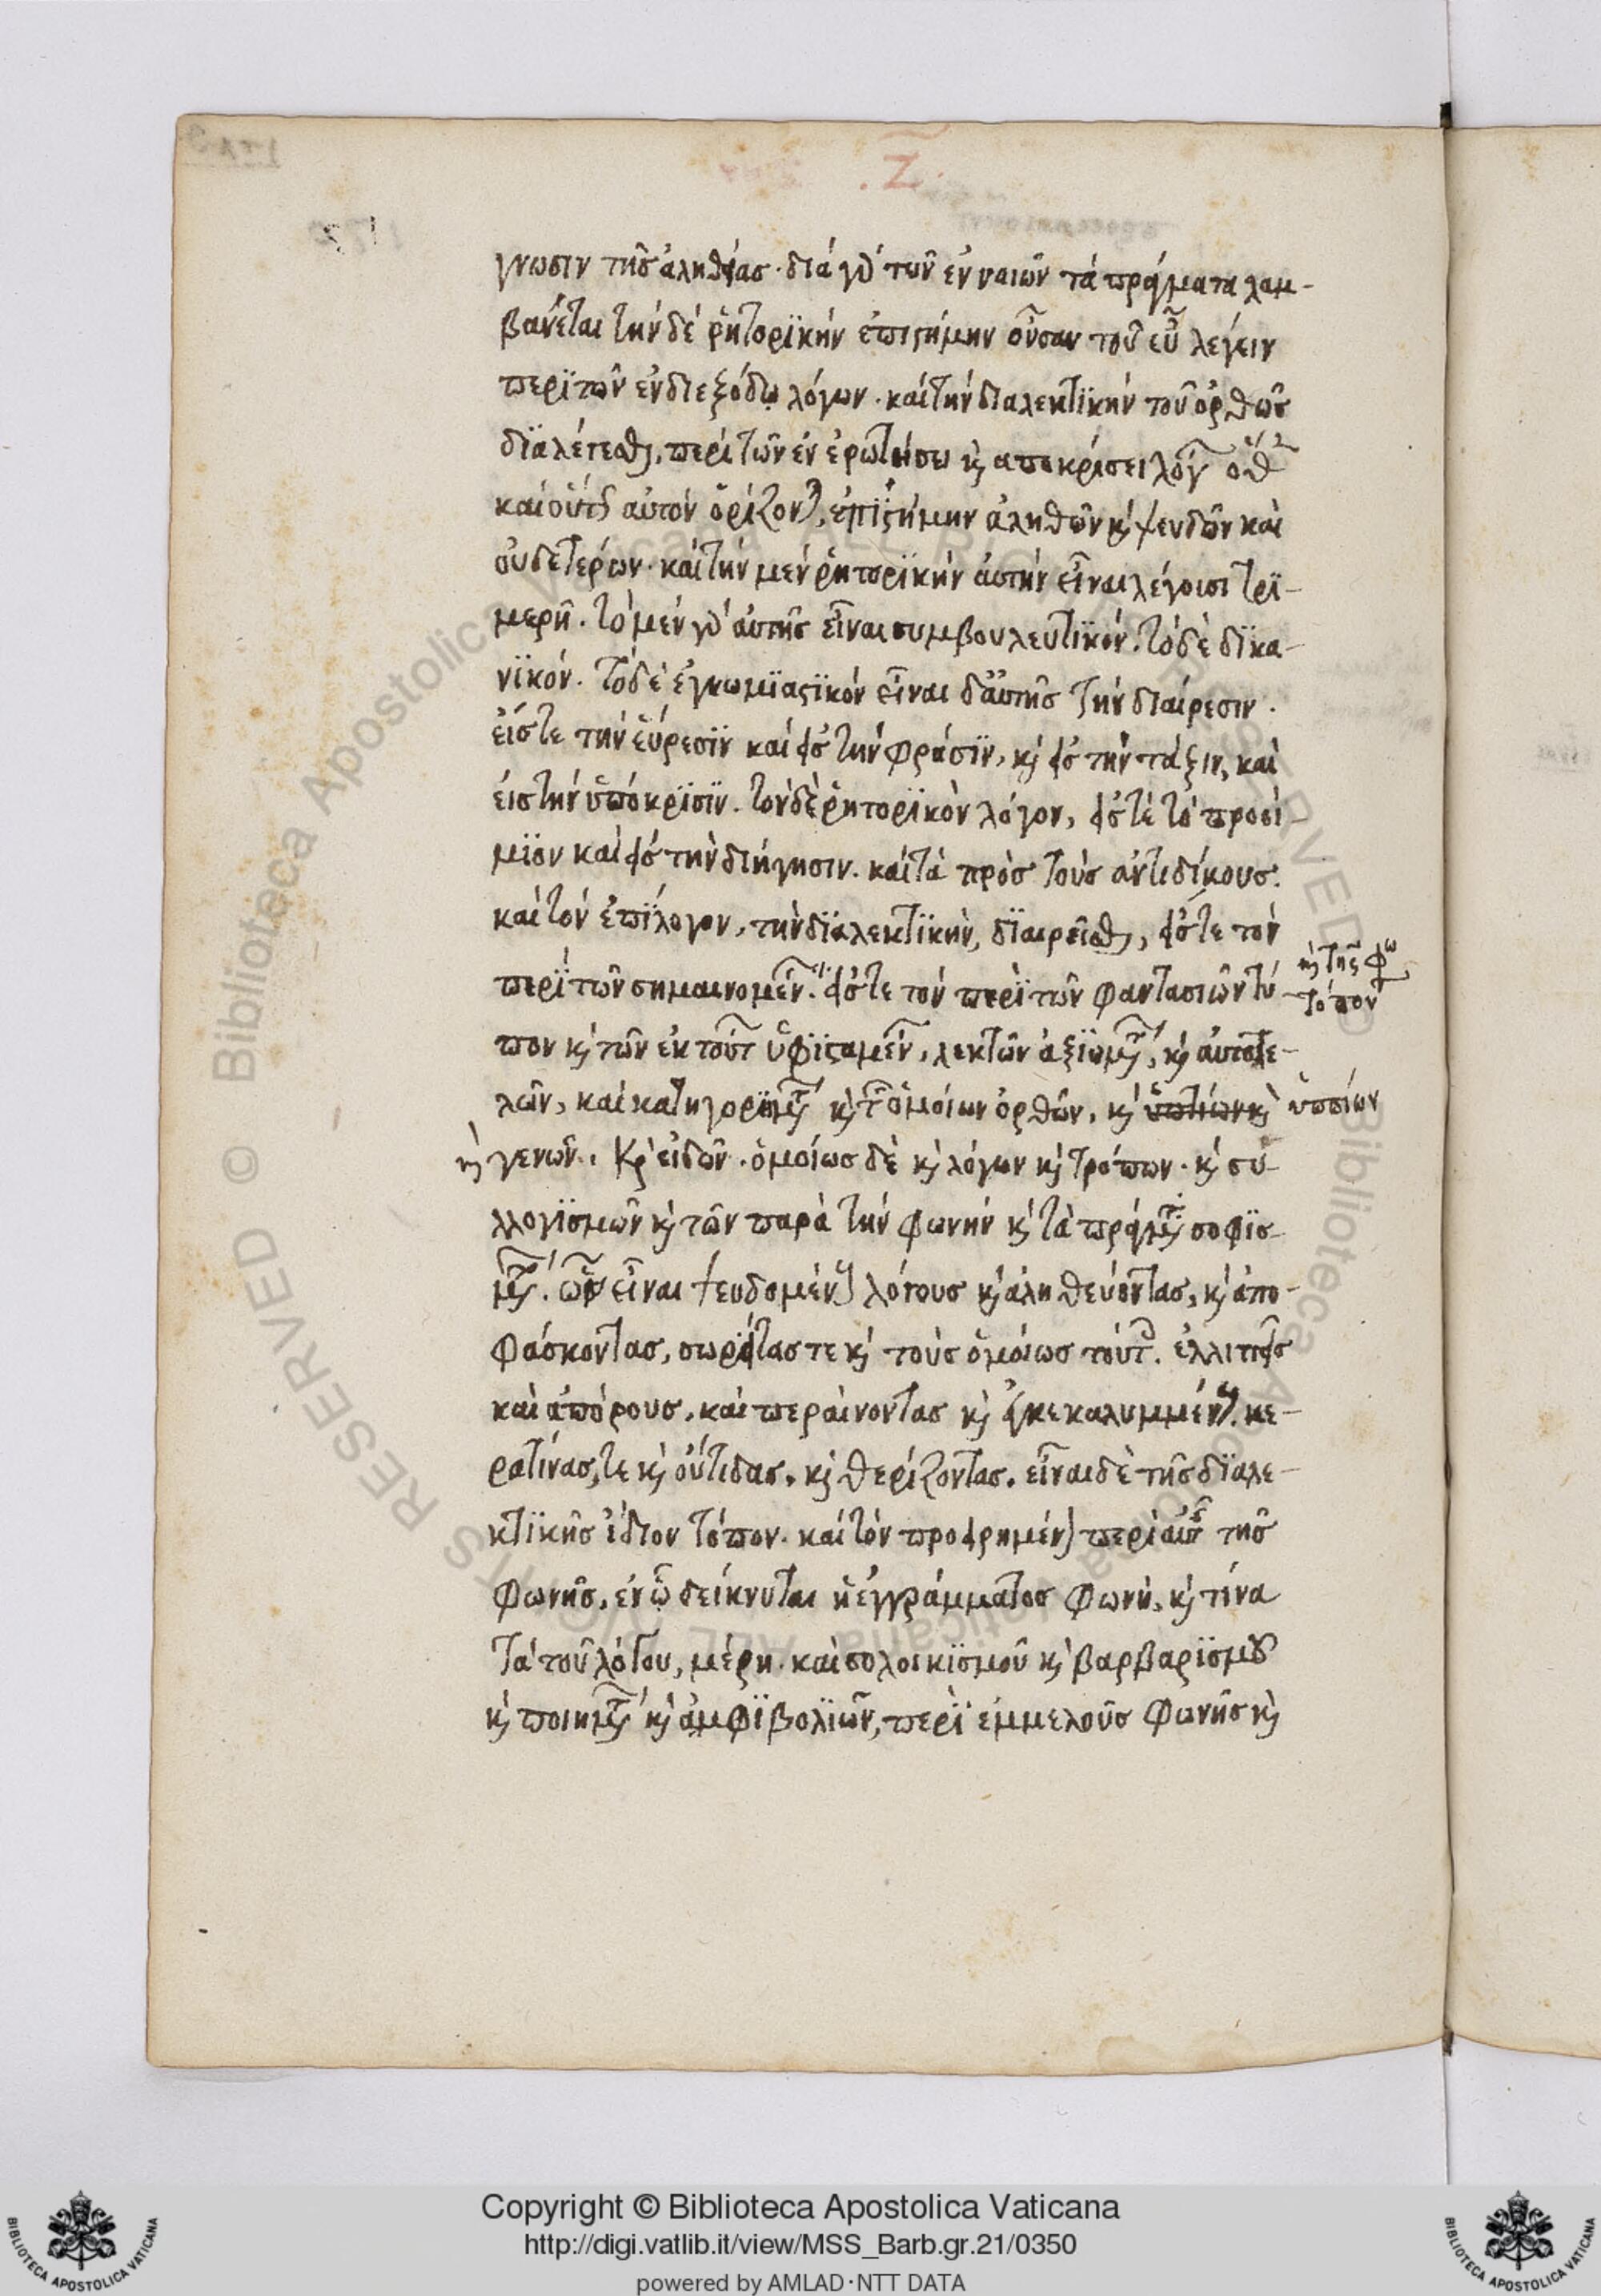 .Ζ.
γνωσιν τῆς ἀληθείας· διά γὰρ τῶν ἐνναιῶν τά πράγματα λαμ-
βάνεται τήν δέ ῥητορϊκήν ἐπιστήμην οὖσαν τοῦ εὖ λέγειν
περϊ τῶν ἐν διεξόδῳ λόγων· καί τήν διαλεκτϊκήν τοῦ ὀρθῶς
δϊαλέγεσθαι, περί τῶν ἐν ἐρωτήσει καὶ αποκρίσει λόγων ὅθεν
καί οὕτως αὐτόν ὁρίζονται, ἐπϊστήμην ἀληθῶν καὶ ψευδῶν καὶ
οὐδετέρων· καί τήν μέν ῥητορϊκήν ἀυτήν εἶναι λέγουσι τρϊ-
μερῆ. τὸ μέν γὰρ ἀυτῆς εἶναι συμβουλευτϊκόν. τὸ δὲ δϊκα-
νϊκόν. τὸ δὲ ἐγκωμϊαστϊκόν εἶναι δ' ἀυτῆς τήν διαίρεσιν.
εἴς τε τήν εὕρεσϊν καί εἰς τήν φράσϊν, καὶ εἰς τήν τάξιν, καὶ
είς τήν ὑπόκρϊσϊν. τόν δὲ ῥητορϊκὸν λόγον, εἴς τὲ τὸ προοί
μϊον καί εἰς τὴν διήγησιν. καί τὰ πρὸς τούς αντιδίκους.
καί τόν ἐπϊλογον, τὴν δϊαλεκτϊκὴν, δϊαιρεῖσθαι, εἴς τε τόν
περϊ τῶν σημαινομένων. εἴς τε τόν περϊ τῶν φαντασιῶν τύ
καὶ τῆς φω
τόπον
πον καὶ τῶν ἐκ τούτων ὑφϊσταμένων, λεκτῶν ἀξϊωμάτων, καὶ αὐτοτε-
λῶν, καί κατηγορημάτων καὶ τῶν ὁμοίων ὀρθῶν, καὶ ὑπτίων καὶ ὑππίων
καὶ γενῶν. καὶ εἰδῶν. ὁμοίως δὲ καὶ λόγων καὶ τρόπων. καὶ συ-
λλογϊσμῶν καὶ τῶν παρὰ τήν φωνήν καὶ τὰ πράγματα σοφϊσ-
μάτων. ὧν εἶναι ψευδομένους λόγους καὶ ἀληθεύοντας, καὶ ἀπο-
φάσκοντας, σωρίτας τε καὶ τούς ὁμοίως τούτοις. ἐλλιπεῖς
καὶ ἀπόρους. καί περαίνοντας καὶ ἐγκεκαλυμμένους. κε-
ρατίνας, τε καὶ οὔτιδας. καὶ θερίζοντας. εἶναι δὲ τῆς δϊαλε-
κτϊκῆς ἴδιον τόπον. καί τόν προειρημένον περί αὐτῆς τῆς
φωνῆς, ἐν ᾧ δείκνυται ἡ ἐγγράμματος φωνή, καὶ τίνα
τὰ τοῦ λόγου, μέρη. καί σολοικϊσμοῦ καὶ βαρβαρϊσμοῦ
καὶ ποιημάτων καὶ ἀμφϊβολϊῶν, περϊ ἐμμελοῦς φωνῆς καὶ
Copyright © Biblioteca Apostolica Vaticana
http://digi.vatlib.it/view/MSS_Barb.gr.21/0350
powered by AMLAD·NTT DATA